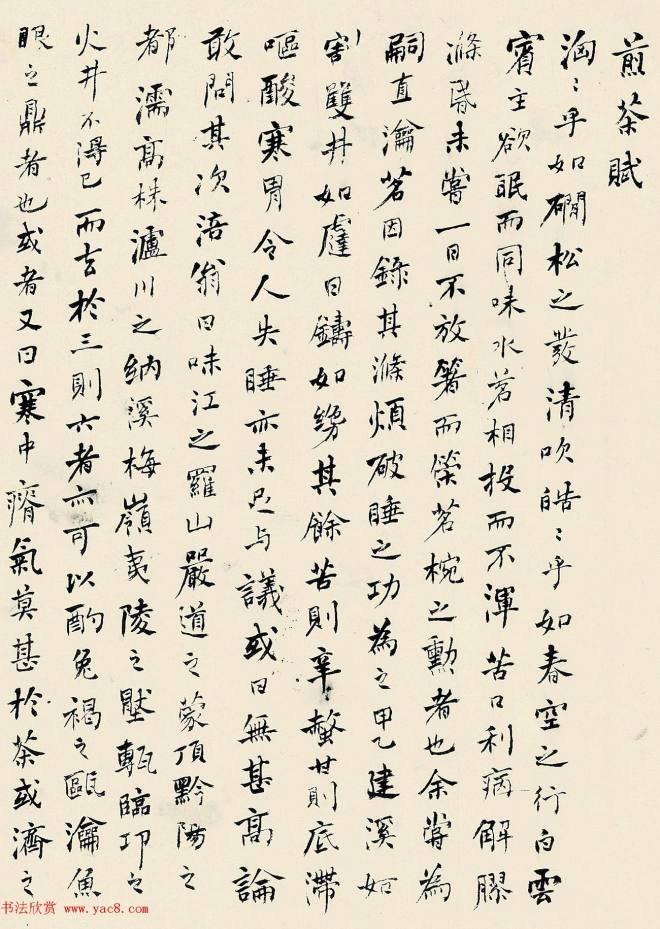 煎茶賦
洶〻乎如磵松之發清吹皓〻乎如春空之行白雲
賓主欲眠而同味水茗相投而不渾苦口利病解膠
滌昏未嘗一日不放箸而策茗椀之勳者也余嘗為
嗣直瀹茗因錄其滌煩破睡之功為之甲乙建溪如
割雙井如䢅日鑄如䋲其餘苦則辛〻螫甘則底滯
嘔酸寒胃令人失睡亦未足与議或曰無甚高論
敢問其次涪翁曰味江之羅山嚴道之蒙頂黔陽之
都濡高株瀘川之納溪梅嶺夷陵之壓甎臨邛之
火井不得已而去於三則六者亦可以酌兔褐之甌瀹魚
眼之鼎者也或者又曰寒中瘠氣莫甚於茶或濟之
书法欣赏 www.yac8.com